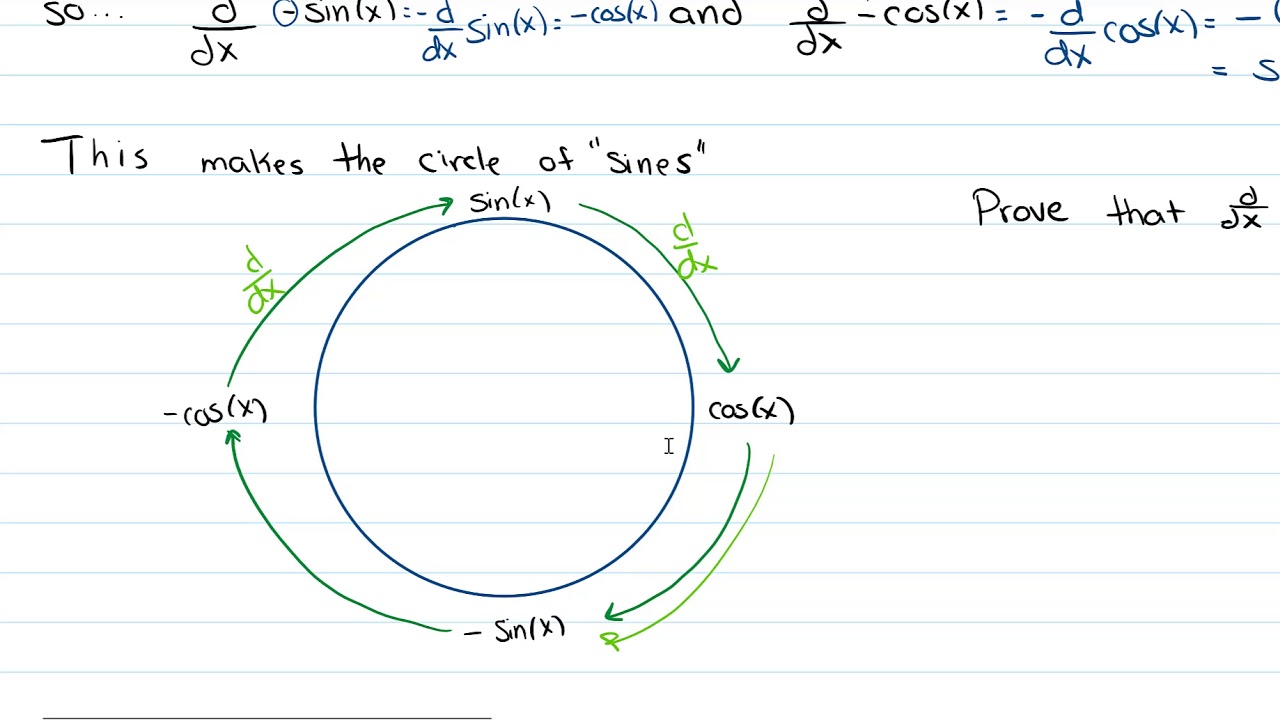 so... d/dx -sin(x) = -d/dx sin(x) = -cos(x) and d/dx -cos(x) = -d/dx cos(x) = -(
= s
This makes the circle of "sines"
sin(x)
Prove that d/dx
d/dx
d/dx
-cos(x)
cos(x)
- sin(x)